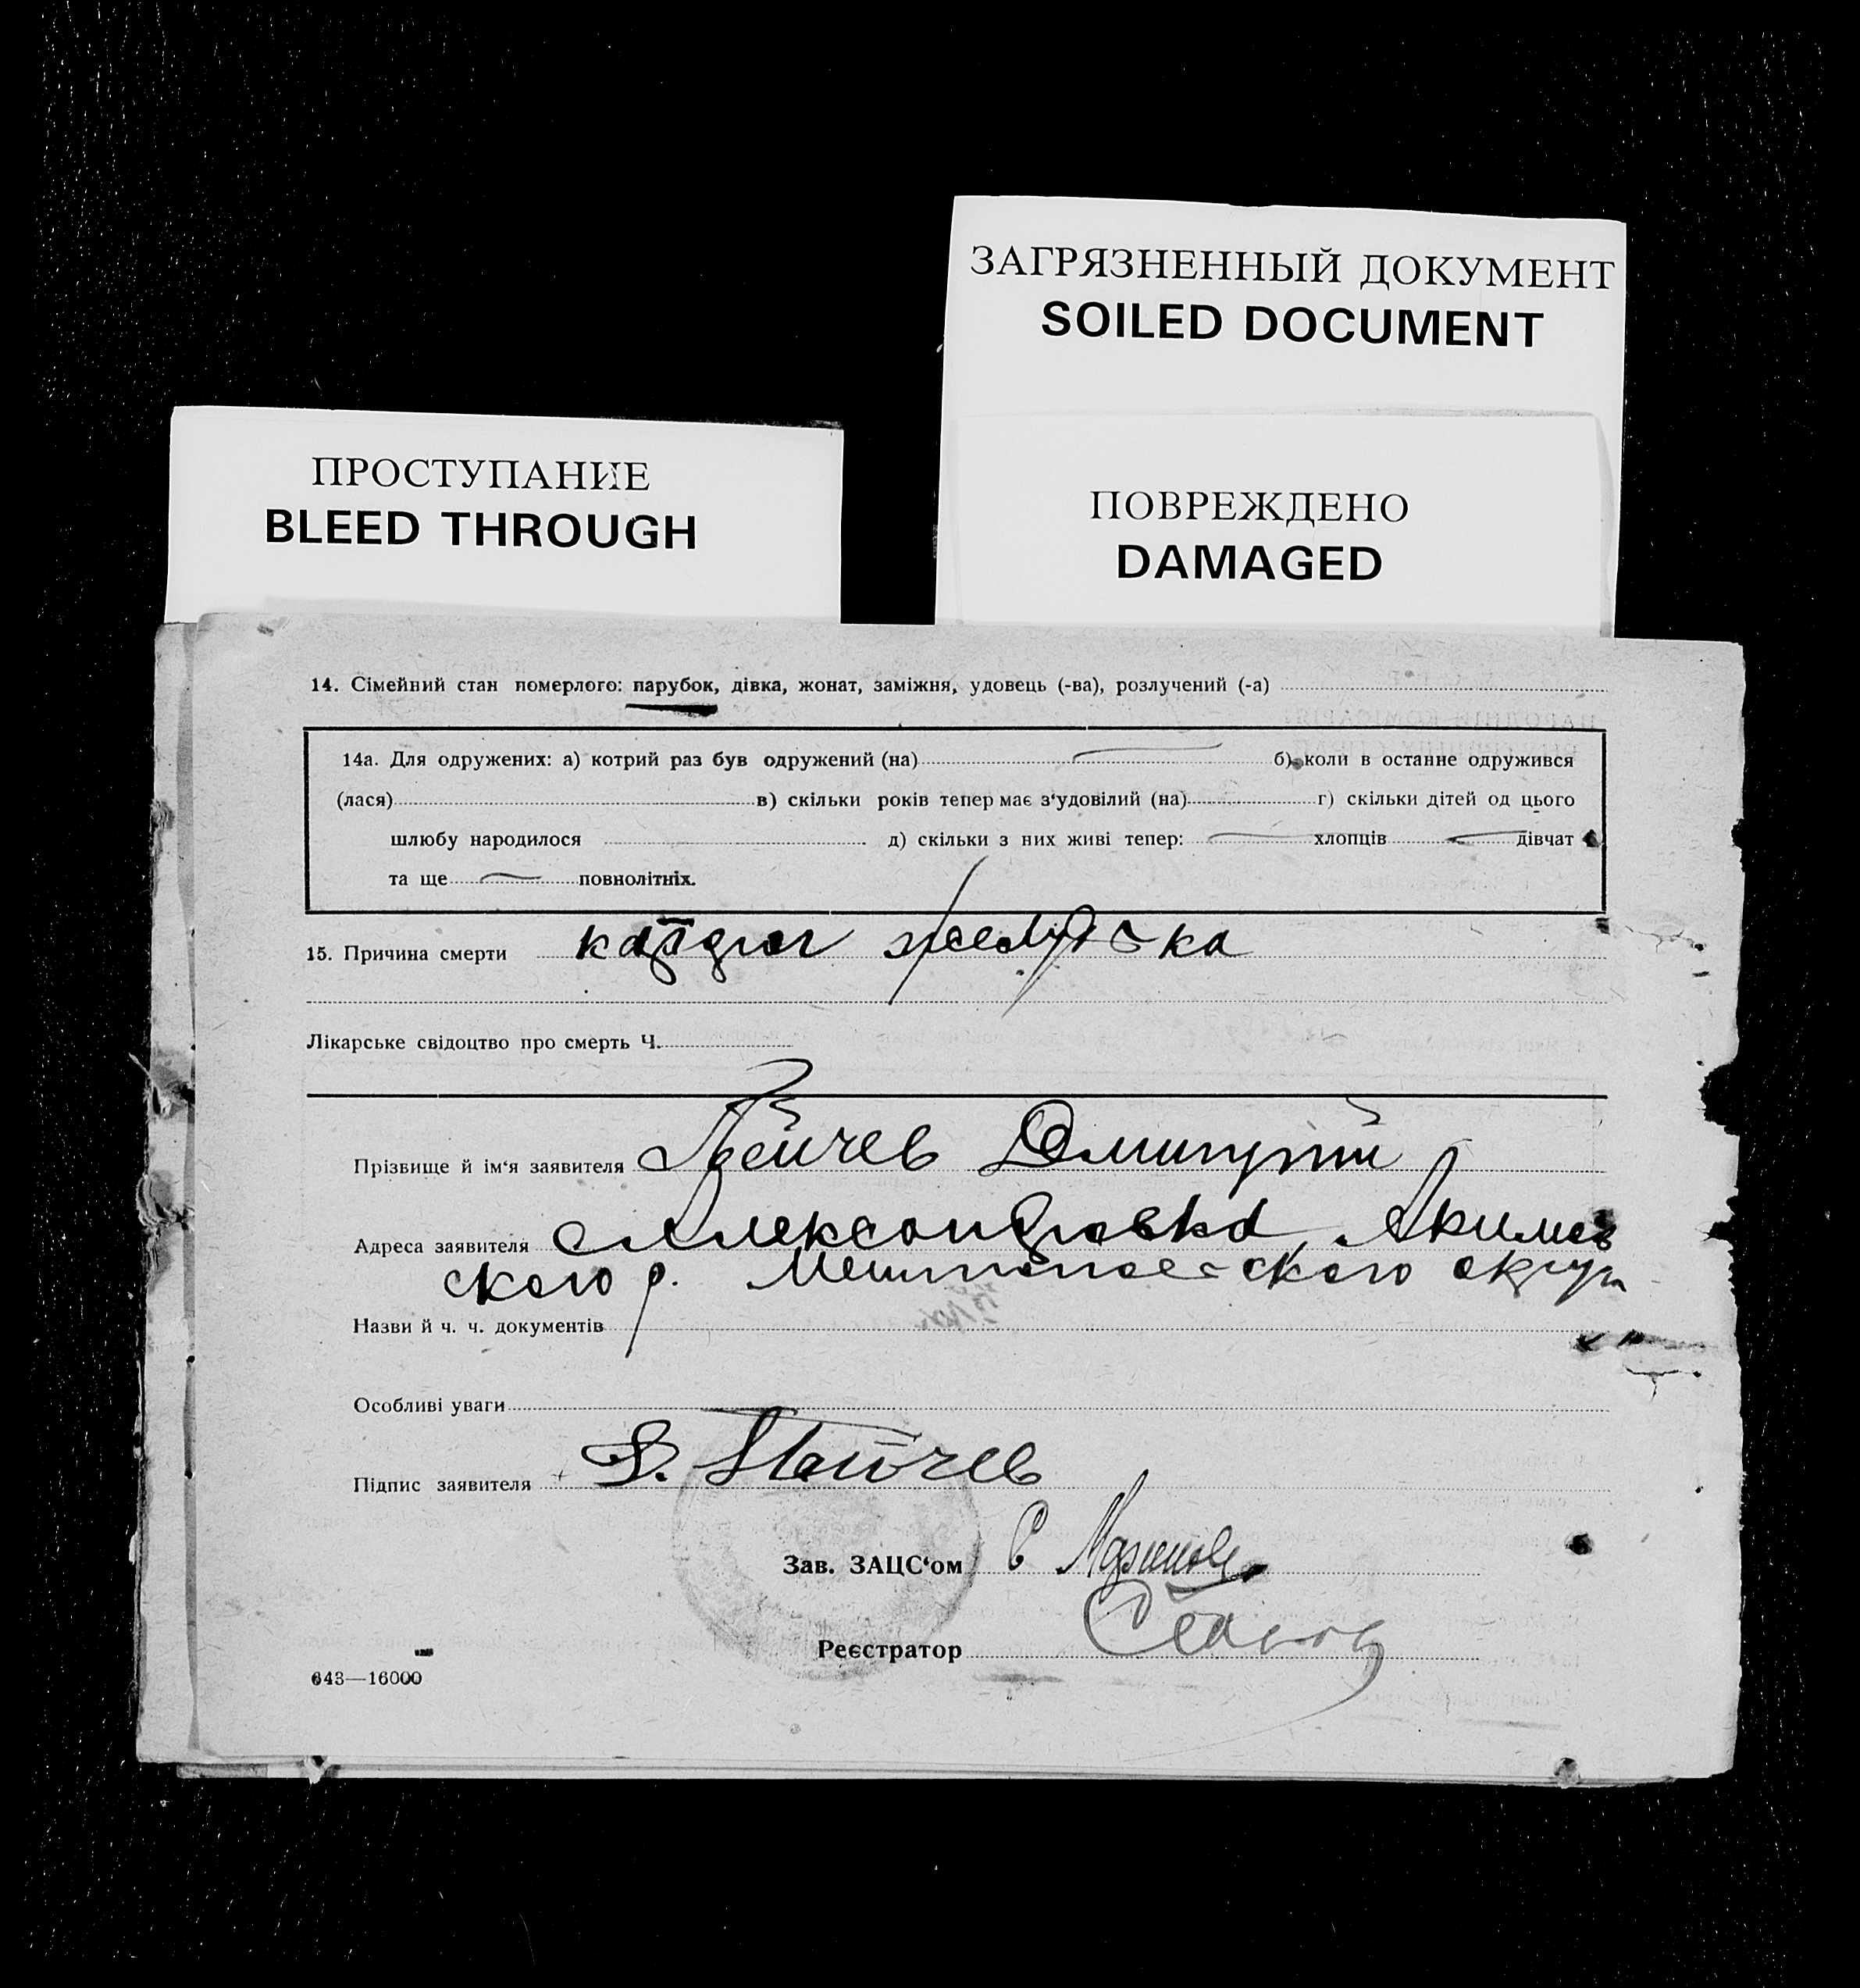 ЗАГРЯЗНЕННЫЙ ДОКУМЕНТ
SOILED DOCUMENT
ПРОСТУПАНИЕ
BLEED THROUGH
ПОВРЕЖДЕНО
DAMAGED
14. Сімейний стан померлого: парубок, дівка, жонат, заміжня, удовець (-ва), розлучений (-а)
14а. Для одружених: а) котрий раз був одружений (на) б) коли в останнє одружився
(лася) в) скільки років тепер має з‘удовілий (на) г) скільки дітей од цього
шлюбу народилося д) скільки з них живі тепер: хлопців дівчат
та ще повнолітніх.
15. Причина смерти желудка
Лікарське свідоцтво про смерть Ч.
Прізвище й ім‘я заявителя Дмитрий
Адреса заявителя с Александровка, Акимов
ского р. Мелитопольского округа
Назви й ч. ч. документів
Особливі уваги
Підпис заявителя Д.
Зав. ЗАЦС‘ом
Реєстратор
643—16000